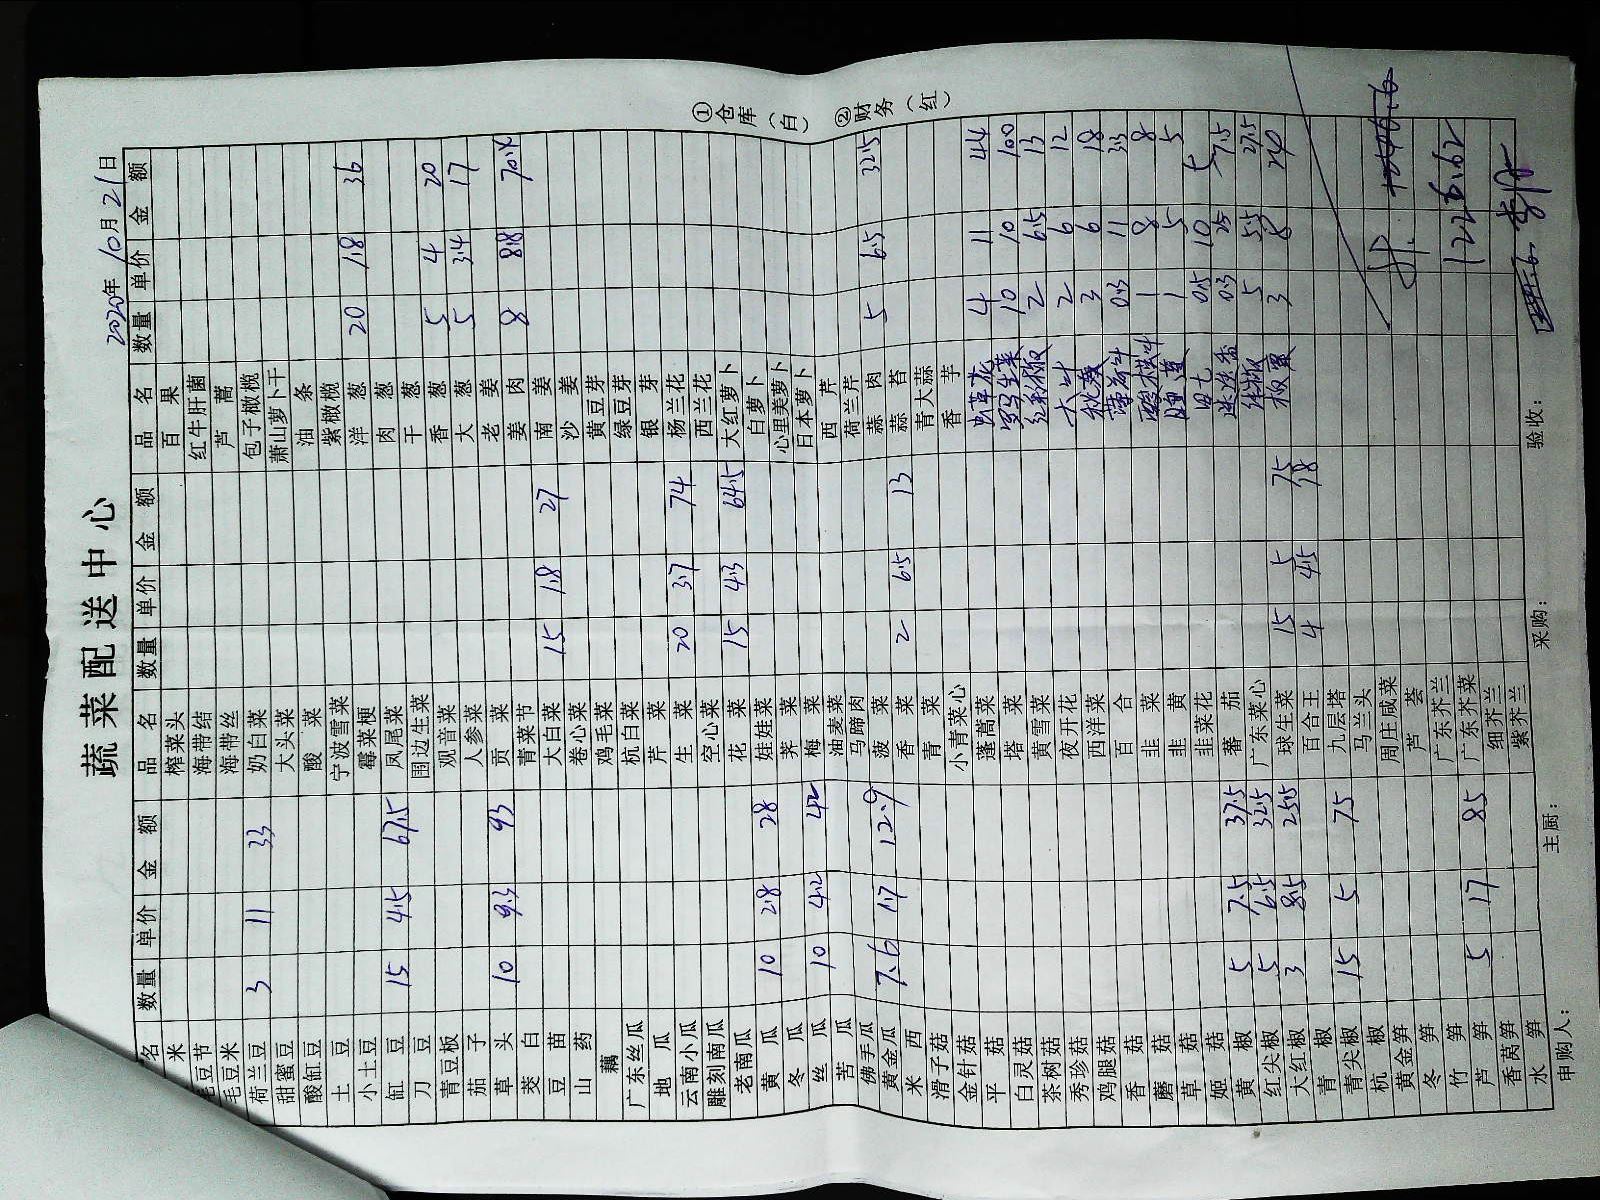 蔬菜配送中心
2020年10月21日
名 数量 单价 金额 品名 数量 单价 金额 品名 数量 单价 金额
米 榨菜头 百果
毛豆节 海带结 红牛肝菌
毛豆米 海带丝 芦蒿
荷兰豆 3 11 33 奶白菜 包子橄榄
甜蜜豆 大头菜 萧山萝卜干
酸缸豆 酸菜 油条
土豆 宁波雪菜 紫橄榄
小土豆 霉菜梗 洋葱 20 1.8 36
缸豆 15 4.5 67.5 凤尾菜 肉葱
刀豆 围边生菜 干葱
青豆板 观音菜 香葱 5 4 20
茄子 人参菜 大葱 5 3.4 17
草头 10 9.3 93 贡菜 老姜
茭白 青菜节 姜肉 8 8.8 70.4
豆苗 大白菜 15 1.8 27 南姜
山药 卷心菜 沙姜
藕 鸡毛菜 黄豆芽
广东丝瓜 杭白菜 绿豆芽
地瓜 芹菜 银芽
云南小瓜 生菜 20 3.7 74 杨兰花
雕刻南瓜 空心菜 西兰花
老南瓜 花菜 15 4.3 64.5 大红萝卜
黄瓜 10 2.8 28 娃娃菜 白萝卜
冬瓜 荠菜 心里美萝卜
丝瓜 10 4.2 42 梅菜 日本萝卜
苦瓜 油麦菜 西芹
佛手瓜 马蹄肉 荷兰芹
黄金瓜 7.6 1.7 12.9 菠菜 蒜肉 5 6.5 32.5
西米 香菜 2 6.5 13 蒜苔
滑子菇 青菜 青大蒜
金针菇 小青菜心 香芋
平菇 蓬蒿菜 虫草花 4 11 44
白灵菇 塔菜 罗马生菜 10 10 100
茶树菇 黄雪菜 红彩椒 2 6.5 13
秀珍菇 夜开花 大叶 2 6 12
鸡腿菇 西洋菜 秋葵 3 6 18
香菇 百合 薄荷叶 0.3 11 3.3
蘑菇 韭菜 1 8 8
草菇 韭黄 1 5 5
姬菇 韭菜花 田七 0.5 10 5
黄椒 5 7.5 37.5 蕃茄 迷迭香 0.3 25 7.5
红尖椒 5 6.5 32.5 广东菜心 线椒 5 5.5 27.5
大红椒 3 8.5 25.5 球生菜 15 5 75 板栗 3 8 24
青椒 百合王 4 4.5 18
青尖椒 15 5 75 九层塔
杭椒 马兰头
黄金笋 周庄咸菜
冬笋 芦荟
竹笋 广东芥兰
芦笋 5 17 85 广东芥菜
香莴笋 细芥兰
水笋 紫芥兰
1226.62
申购人： 主厨： 采购： 验收：
①仓库（白） ②财务（红）